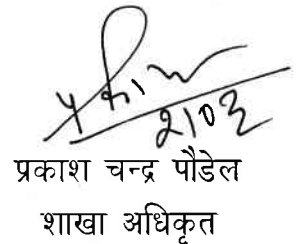 २।०३
प्रकाश चन्द्र पौडेल
शाखा अधिकृत